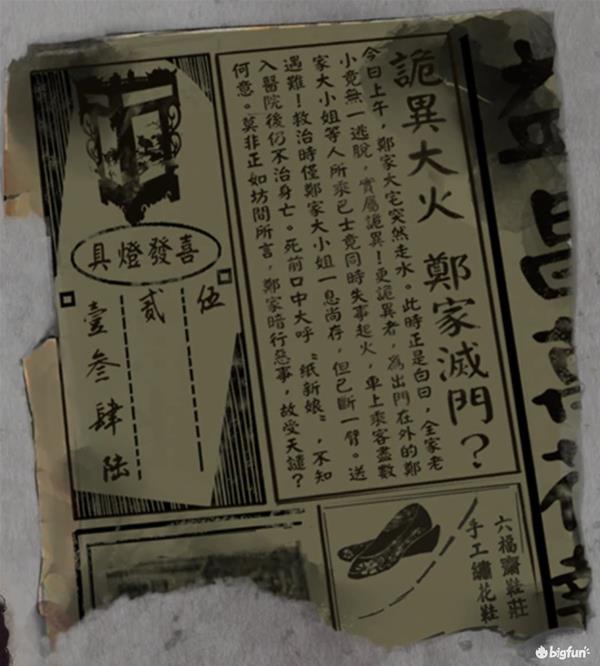 昌
詭異大火 鄭家滅門？
今日上午，鄭家大宅突然走水。此時正是白日，全家老
小竟無一逃脫，實屬詭異！更詭異者，為出門在外的鄭
家大小姐等人所乘巴士竟同時失事起火，車上乘客盡數
遇難！救治時僅鄭家大小姐一息尚存，但已斷一臂。送
入醫院後仍不治身亡。死前口中大呼“纸新娘”，不知
何意。莫非正如坊間所言，鄭家暗行惡事，故受天譴？
喜發燈具
伍
貳
壹叁肆陸
六福齋鞋莊
手工繡花鞋
bigfun